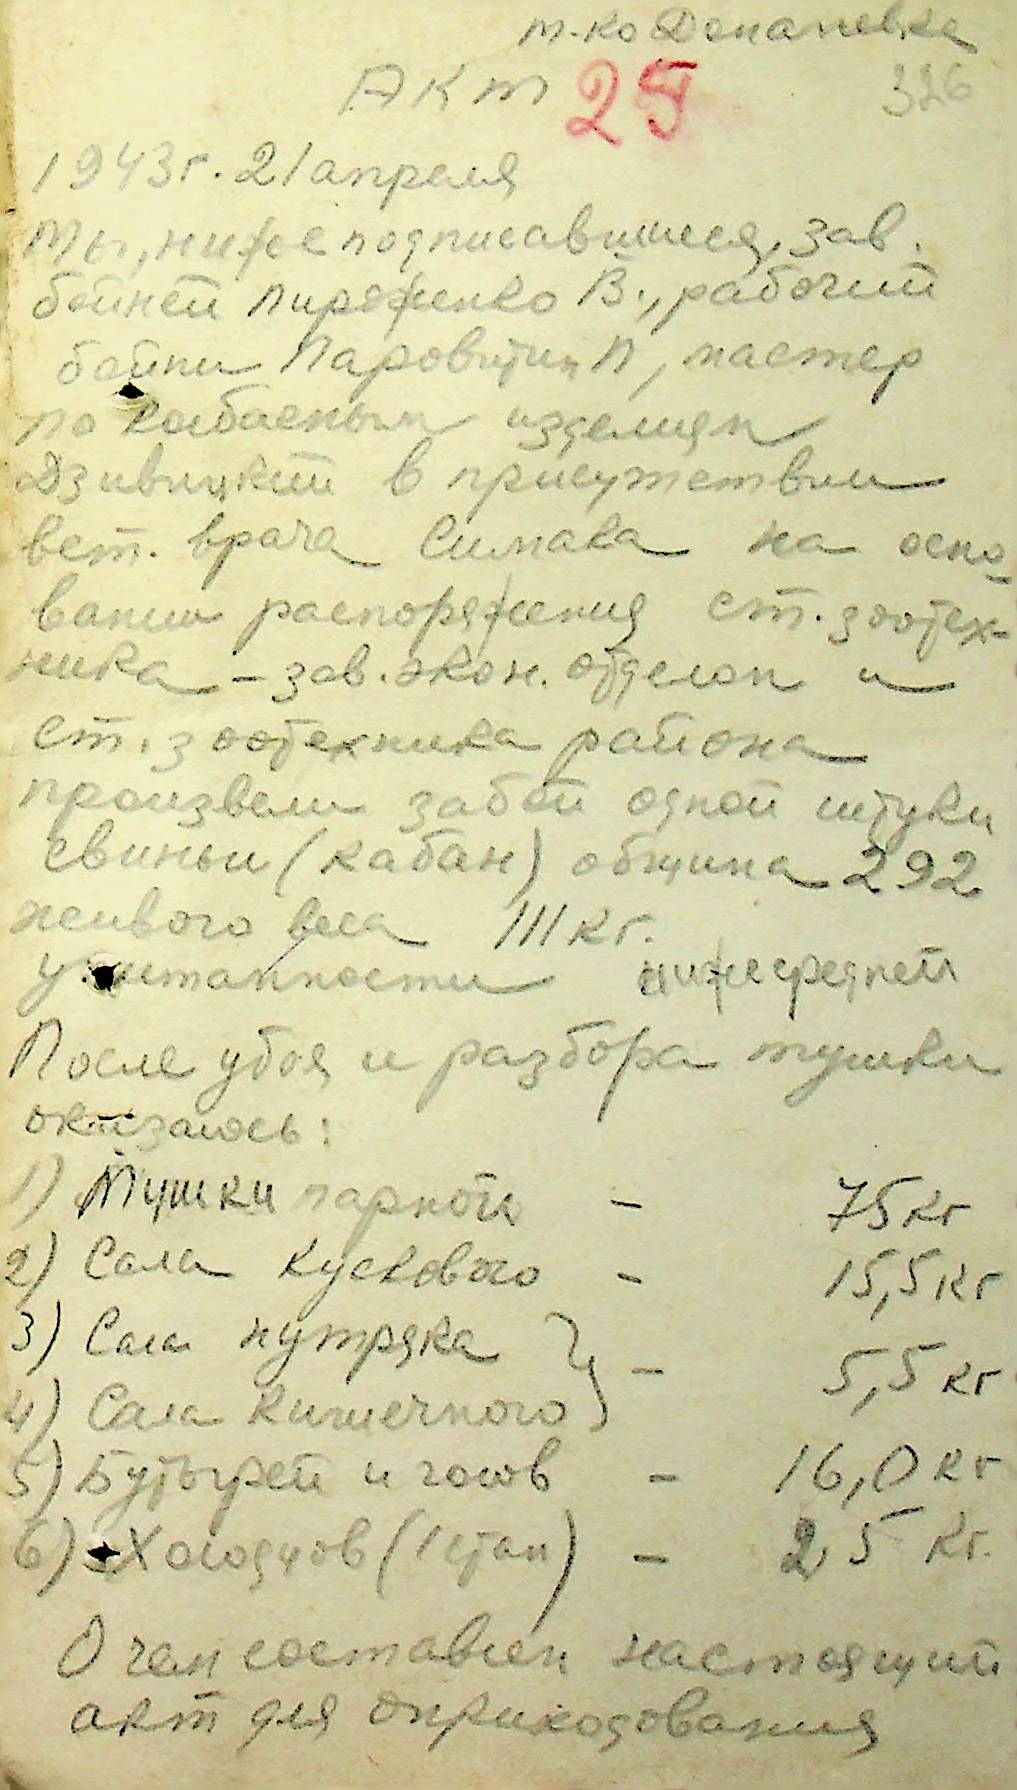 т-ко
Акт 25 326
1943 г. 21 апреля
Мы, нижеподписавшиеся, зав.
бойней Пироженко В., рабочий
бойни П, мастер
по колбасным изделиям
Дзивицкий в присутствии
вет. врача Симака на осно-
вании распоряжения ст. зоотех-
ника - зав. экон. отделом и
ст. зоотехника района
произвели забой одной штуки
свиньи (кабан) общипа 292
живого веса 111 кг.
упитанности нижесредней
После убоя и разбора тушки
оказалось:
1) Тушки парной - 75 кг
2) Сала кускового - 15,5 кг
3) Сала нутряка
4) Сала кишечного } - 5,5 кг
5) Бутырей и голов - 16,0 кг
6) Холодцов (1 стан) - 2,5 кг.
О чем составлен настоящий
акт для оприходования